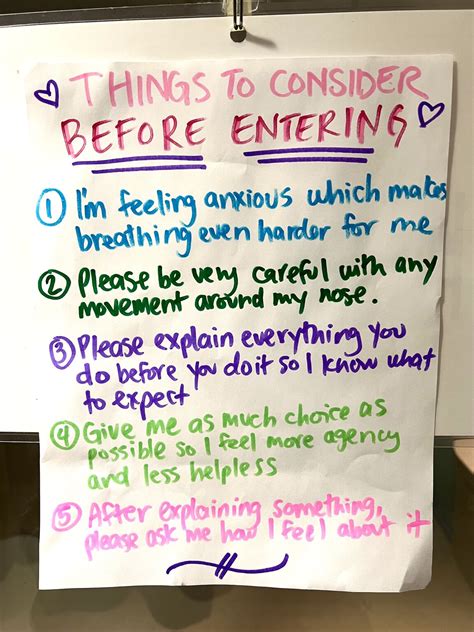 THINGS TO CONSIDER
BEFORE ENTERING
1 I'm feeling anxious which makes
breathing even harder for me
2 Please be very careful with any
movement around my nose.
3 Please explain everything you
do before you do it so I know what
to expect
4 Give me as much choice as
possible so I feel more agency
and less helpless
5 After explaining something,
please ask me how I feel about it